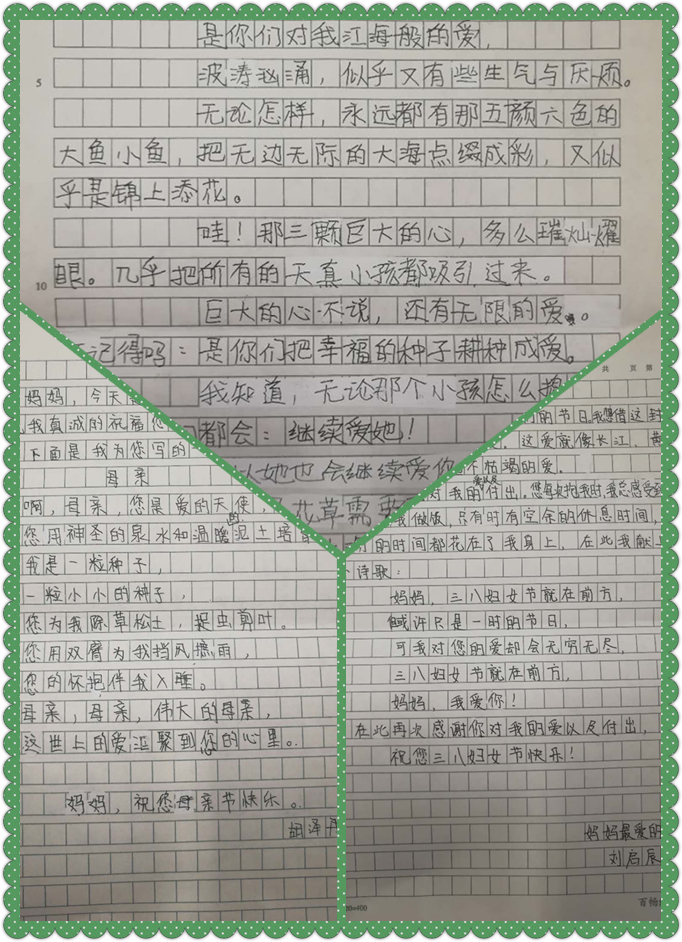 是你们对我江海般的爱，
5
波涛汹涌，似乎又有些生气与厌烦。
无论怎样，永远都有那五颜六色的
大鱼小鱼，把无边无际的大海点缀成彩，又似
乎是锦上添花。
哇！那三颗巨大的心，多么璀灿耀
10
眼。几乎把所有的天真小孩都吸引过来。
巨大的心不说，还有无限的爱。
记得吗：是你们把幸福的种子耕种成爱。
我知道，无论那个小孩怎么
都会：继续爱她！
以她也会继续爱你
花草需要
妈妈，今天
我真诚的祝福
下面是我为您写的
母亲
啊，母亲，您是爱的天使，
您用神圣的泉水和温暖的泥土培
我是一粒种子，
一粒小小的种子，
您为我除草松土，捉虫剪叶。
您用双臂为我挡风遮雨，
您的怀抱伴我入睡。
母亲，母亲，伟大的母亲，
这世上的爱汇聚到您的心里。
妈妈，祝您母亲节快乐。
胡泽
共 页 第
的节日。我想借这封
这爱就像长江、黄
不枯竭的爱。
对我的付出。您每次抱我时，我总感受到
我做饭，只有时有空余的休息时间，
的时间都花在了我身上，在此我献上
诗歌：
妈妈，三八妇女节就在前方，
或许只是一时的节日，
可我对您的爱却会无穷无尽，
三八妇女节就在前方，
妈妈，我爱你！
在此再次感谢你对我的爱以及付出，
祝您三八妇女节快乐！
妈妈最爱的
刘启辰
20=400
百畅